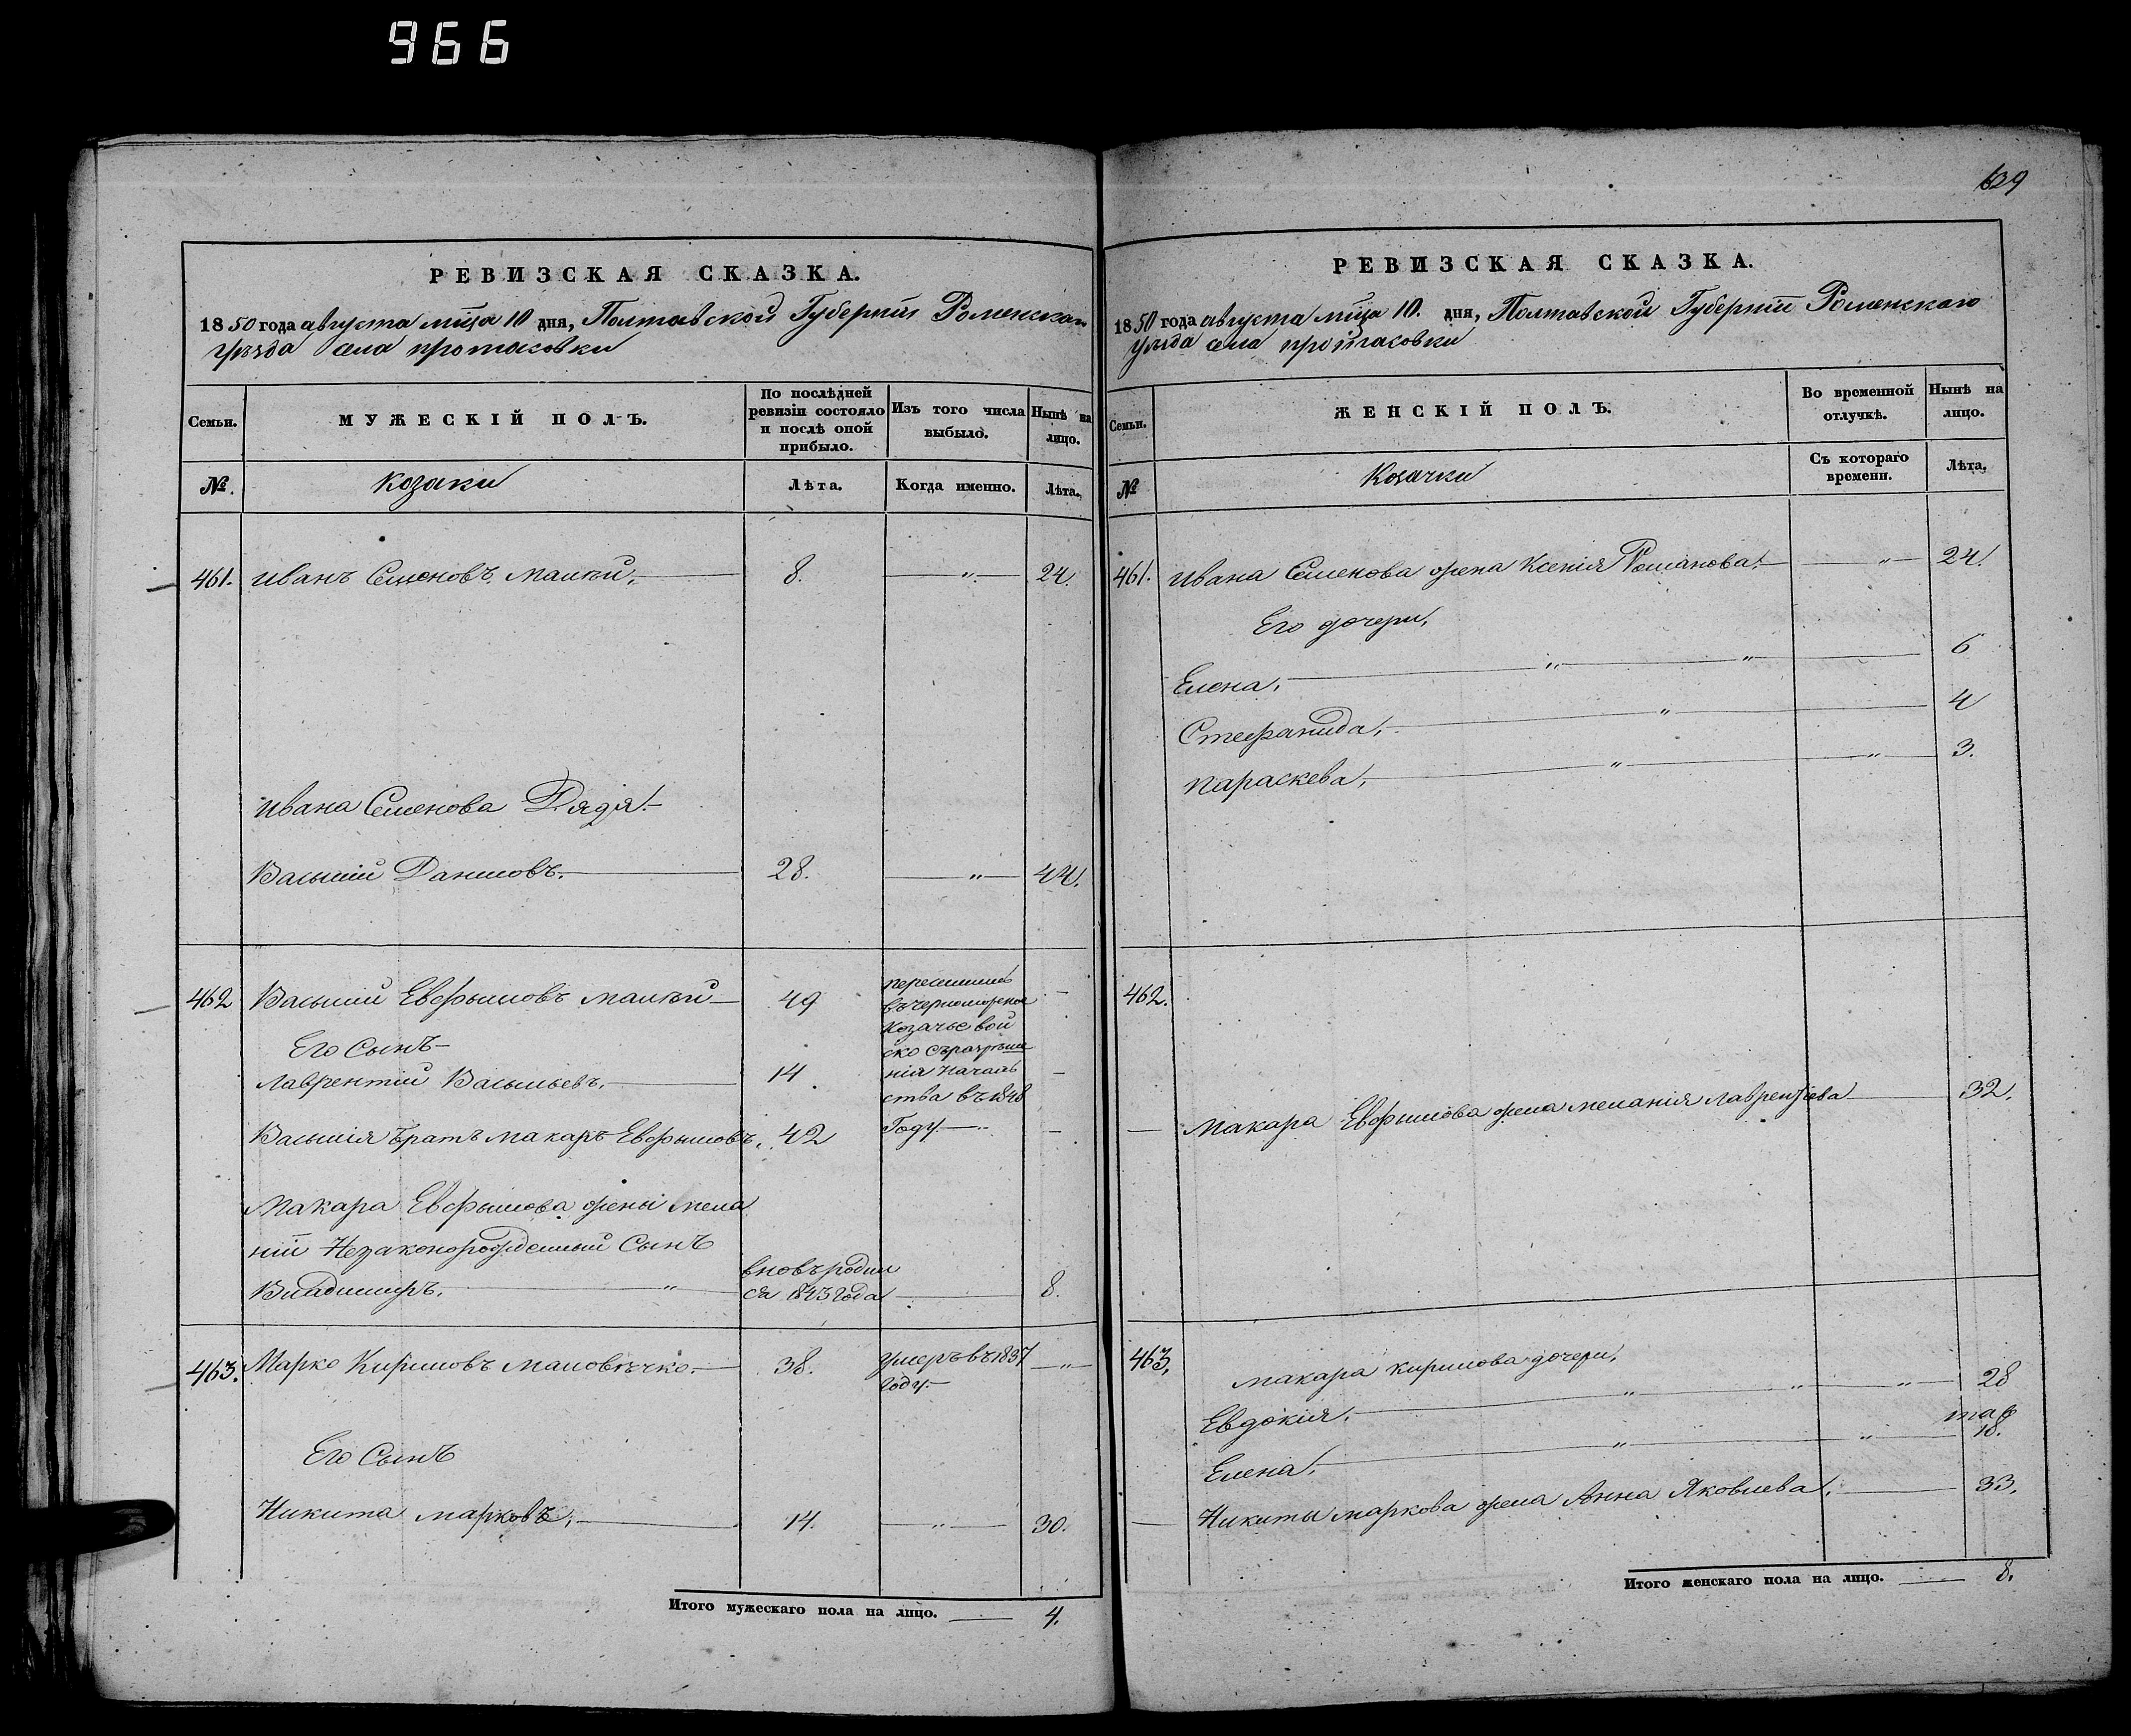 966
629
РЕВИЗСКАЯ СКАЗКА.
1850 года августа мѣца 10 дня, Полтавской Губерніи Роменскаго
уѣзда села протасовки
Семьи.
МУЖЕСКІЙ ПОЛЪ.
По послѣдней
ревизіи состояло
и послѣ оной
прибыло.
Изъ того числа
выбыло.
Нынѣ на
лицо.
№.
козаки
Лѣта.
Когда именно.
Лѣта.
461. иванъ Семеновъ 8. " 24.
ивана Семенова Дядя.
Василий Даниловъ. 28. " 44.
462 Василий Евфимовъ 49
переселились
въ черноморское
Козачье вой
ско съ разрѣше
нія Началь
ства въ 1848
Году
Его Сынъ
Лаврентий Васильевъ. 14
Василія братъ макаръ Евфимовъ. 42
Макара Евфимова жены мела
ніи Незаконорожденный Сынъ
Владимиръ. " вновъ родил
ся 1843 года 8.
463. Марко Кириловъ 38. умеръ въ 1837
году. "
Его Сынъ
Никита марковъ. 14. " 30.
Итого мужескаго пола на лицо. 4.
РЕВИЗСКАЯ СКАЗКА.
1850 года августа мѣца 10. дня, Полтавской Губерніи Роменскаго
уѣзда села протасовки
Семьи.
ЖЕНСКІЙ ПОЛЪ.
Во временной
отлучкѣ.
Нынѣ на
лицо.
№
Козачки
Съ котораго
времени.
Лѣта,
461. ивана Семенова жена Ксенія Романова. " 24.
Его дочери,
Елена, " " 6
Стефанида, " 4
параскева, " " 3.
462.
Макара Евфимова жена мелания Лаврентіева 32.
463. макара кирилова дочери,
Евдокия. " " " 28
Елена. " " 18.
Никиты маркова жена Анна Яковлева. 33.
Итого женскаго пола на лицо. 8.